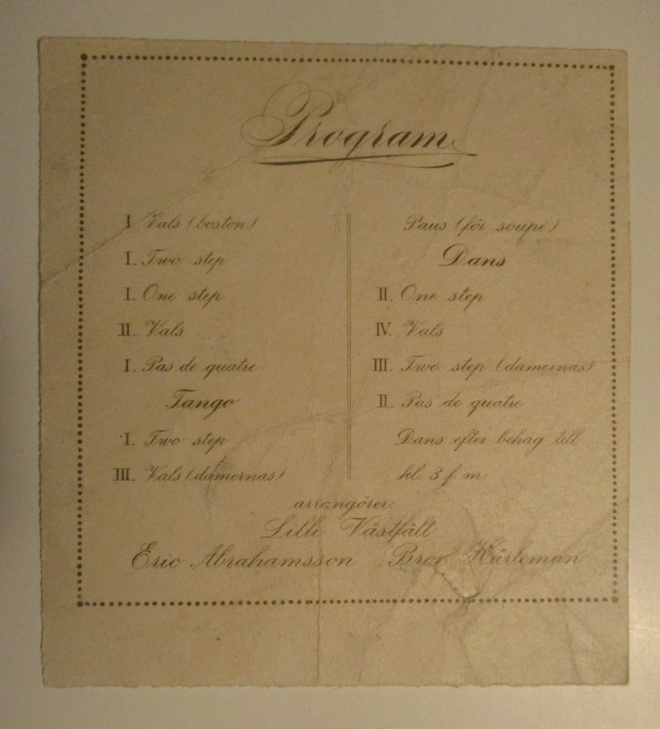 Program
I. Vals (boston)
I. Two step
I. One step
II. Vals
I. Pas de quatre
Tango
I. Two step
III. Vals (damernas)
Paus (för soupé)
Dans
II. One step
IV. Vals
III. Two step (damernas)
II. Pas de quatre
Dans efter behag till
kl. 3 f m
arrangörer:
Lilli Västfält
Eric Abrahamsson Bror Hårleman